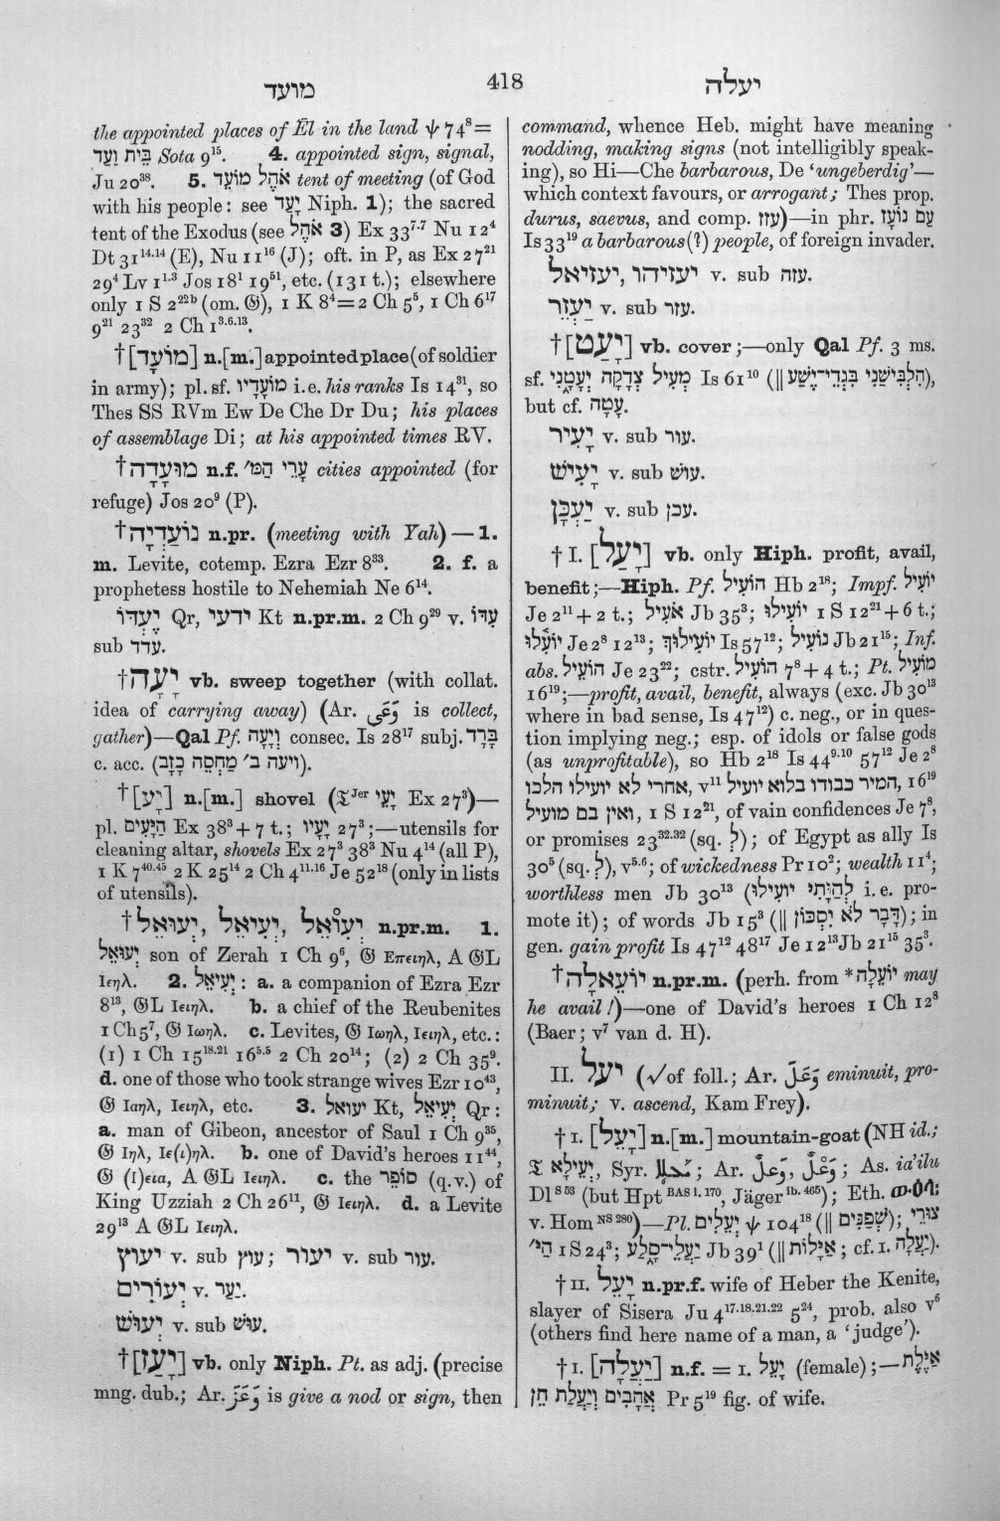 מועד
418
יעלה
the appointed places of Ēl in the land ψ 74⁸=
בֵּית וַעַד Sota 9¹⁵. 4. appointed sign, signal,
Ju 20³⁸. 5. אֹהֶל מוֹעֵד tent of meeting (of God
with his people: see יָעַד Niph. 1); the sacred
tent of the Exodus (see אֹהֶל 3) Ex 33⁷·⁷ Nu 12⁴
Dt 31¹⁴·¹⁴ (E), Nu 11¹⁶ (J); oft. in P, as Ex 27²¹
29⁴ Lv 1¹·³ Jos 18¹ 19⁵¹, etc. (131 t.); elsewhere
only 1 S 2²²ᵇ (om. 𝔊), 1 K 8⁴=2 Ch 5⁵, 1 Ch 6¹⁷
9²¹ 23³² 2 Ch 1³·⁶·¹³.
†[מוֹעָד] n.[m.] appointed place (of soldier
in army); pl. sf. מוֹעָדָיו i.e. his ranks Is 14³¹, so
Thes SS RVm Ew De Che Dr Du; his places
of assemblage Di; at his appointed times RV.
†מוּעָדָה n.f. עָרֵי הַמּ׳ cities appointed (for
refuge) Jos 20⁹ (P).
†נוֹעַדְיָה n.pr. (meeting with Yah)—1.
m. Levite, cotemp. Ezra Ezr 8³³. 2. f. a
prophetess hostile to Nehemiah Ne 6¹⁴.
יֶעְדּוֹ Qr, יעדי Kt n.pr.m. 2 Ch 9²⁹ v. עִדּוֹ
sub עדד.
†יָעָה vb. sweep together (with collat.
idea of carrying away) (Ar. وَعَى is collect,
gather)—Qal Pf. וְיָעָה consec. Is 28¹⁷ subj. בָּרָד
c. acc. (ויעה ב׳ מַחְסֵה כָזָב).
†[יָע] n.[m.] shovel (𝔗ᴶᵉʳ יָעֵי Ex 27³)—
pl. הַיָּעִים Ex 38³+7 t.; יָעָיו 27³;—utensils for
cleaning altar, shovels Ex 27³ 38³ Nu 4¹⁴ (all P),
1 K 7⁴⁰·⁴⁵ 2 K 25¹⁴ 2 Ch 4¹¹·¹⁶ Je 52¹⁸ (only in lists
of utensils).
†יְעוּאֵל, יְעִיאֵל, יְעִוֹאֵל n.pr.m. 1.
יְעוּאֵל son of Zerah 1 Ch 9⁶, 𝔊 Επειηλ, A 𝔊L
Ιεηλ. 2. יְעִיאֵל: a. a companion of Ezra Ezr
8¹³, 𝔊L Ιειηλ. b. a chief of the Reubenites
1 Ch 5⁷, 𝔊 Ιωηλ. c. Levites, 𝔊 Ιωηλ, Ιειηλ, etc.:
(1) 1 Ch 15¹⁸·²¹ 16⁵·⁵ 2 Ch 20¹⁴; (2) 2 Ch 35⁹.
d. one of those who took strange wives Ezr 10⁴³,
𝔊 Ιαηλ, Ιειηλ, etc. 3. יעואל Kt, יְעִיאֵל Qr:
a. man of Gibeon, ancestor of Saul 1 Ch 9³⁵,
𝔊 Ιηλ, Ιε(ι)ηλ. b. one of David's heroes 11⁴⁴,
𝔊 (Ι)εια, A 𝔊L Ιειηλ. c. the סוֹפֵר (q.v.) of
King Uzziah 2 Ch 26¹¹, 𝔊 Ιειηλ. d. a Levite
29¹³ A 𝔊L Ιειηλ.
יעוץ v. sub עוץ; יעור v. sub עור.
יְעוֹרִים v. יַעַר.
יְעוּשׁ v. sub עוּשׁ.
†[יָעַז] vb. only Niph. Pt. as adj. (precise
mng. dub.; Ar. وَعَزَ is give a nod or sign, then
command, whence Heb. might have meaning
nodding, making signs (not intelligibly speak-
ing), so Hi—Che barbarous, De 'ungeberdig'—
which context favours, or arrogant; Thes prop.
durus, saevus, and comp. עזז)—in phr. עַם נוֹעָז
Is 33¹⁹ a barbarous(?) people, of foreign invader.
יעזיאל, יעזיהו v. sub עזה.
יַעְזֵר v. sub עזר.
†[יָעַט] vb. cover;—only Qal Pf. 3 ms.
sf. מְעִיל צְדָקָה יְעָטָנִי Is 61¹⁰ (‖ הִלְבִּישַׁנִי בִּגְדֵי־יֶשַׁע),
but cf. עָטָה.
יָעִיר v. sub עור.
יְעִישׁ v. sub עושׁ.
יַעְכָּן v. sub עכן.
†I. [יָעַל] vb. only Hiph. profit, avail,
benefit;—Hiph. Pf. הוֹעִיל Hb 2¹⁸; Impf. יוֹעִיל
Je 2¹¹+2 t.; אֹעִיל Jb 35³; יוֹעִילוּ 1 S 12²¹+6 t.;
יוֹעִלוּ Je 2⁸ 12¹³; יוֹעִילוּךְ Is 57¹²; נוֹעִיל Jb 21¹⁵; Inf.
abs. הוֹעִיל Je 23³²; cstr. הוֹעִיל 7⁸+4 t.; Pt. מוֹעִיל
16¹⁹;—profit, avail, benefit, always (exc. Jb 30¹³
where in bad sense, Is 47¹²) c. neg., or in ques-
tion implying neg.; esp. of idols or false gods
(as unprofitable), so Hb 2¹⁸ Is 44⁹·¹⁰ 57¹² Je 2⁸
אחרי לא יועילו הלכו, v¹¹ המיר כבודו בלוא יועיל, 16¹⁹
ואין בם מועיל, 1 S 12²¹, of vain confidences Je 7⁸,
or promises 23³²·³² (sq. לְ); of Egypt as ally Is
30⁵ (sq. לְ), v⁵·⁶; of wickedness Pr 10²; wealth 11⁴;
worthless men Jb 30¹³ (לְהַוָּתִי יועילו i.e. pro-
mote it); of words Jb 15³ (‖ דָּבָר לֹא יִסְכּוֹן); in
gen. gain profit Is 47¹² 48¹⁷ Je 12¹³ Jb 21¹⁵ 35³.
†יוֹעֵאלָה n.pr.m. (perh. from *יוֹעֵלָה may
he avail!)—one of David's heroes 1 Ch 12⁸
(Baer; v⁷ van d. H).
II. יעל (√of foll.; Ar. وَعَلَ eminuit, pro-
minuit; v. ascend, Kam Frey).
†I. [יָעֵל] n.[m.] mountain-goat (NH id.;
𝔗 יַעֲילָא, Syr. ; Ar. وَعْلٌ, وَعِلٌ; As. ia'ilu
Dl ˢ ⁵³ (but Hpt ᴮᴬˢ ⁱ· ¹⁷⁰, Jäger ⁱᵇ· ⁴⁶⁵); Eth. ወዕላ:
v. Hom ᴺˢ ²⁸⁰)—Pl. יְעֵלִים ψ 104¹⁸ (‖ שְׁפַנִּים); צוּרֵי
הַיּ׳ 1 S 24³; יַעֲלֵי־סָלַע Jb 39¹ (‖ אַיָּלוֹת; cf. I. יַעֲלָה).
†II. יָעֵל n.pr.f. wife of Heber the Kenite,
slayer of Sisera Ju 4¹⁷·¹⁸·²¹·²² 5²⁴, prob. also v⁶
(others find here name of a man, a 'judge').
†I. [יַעֲלָה] n.f. = I. יָעֵל (female);—אַיֶּלֶת
אֲהָבִים וְיַעֲלַת חֵן Pr 5¹⁹ fig. of wife.